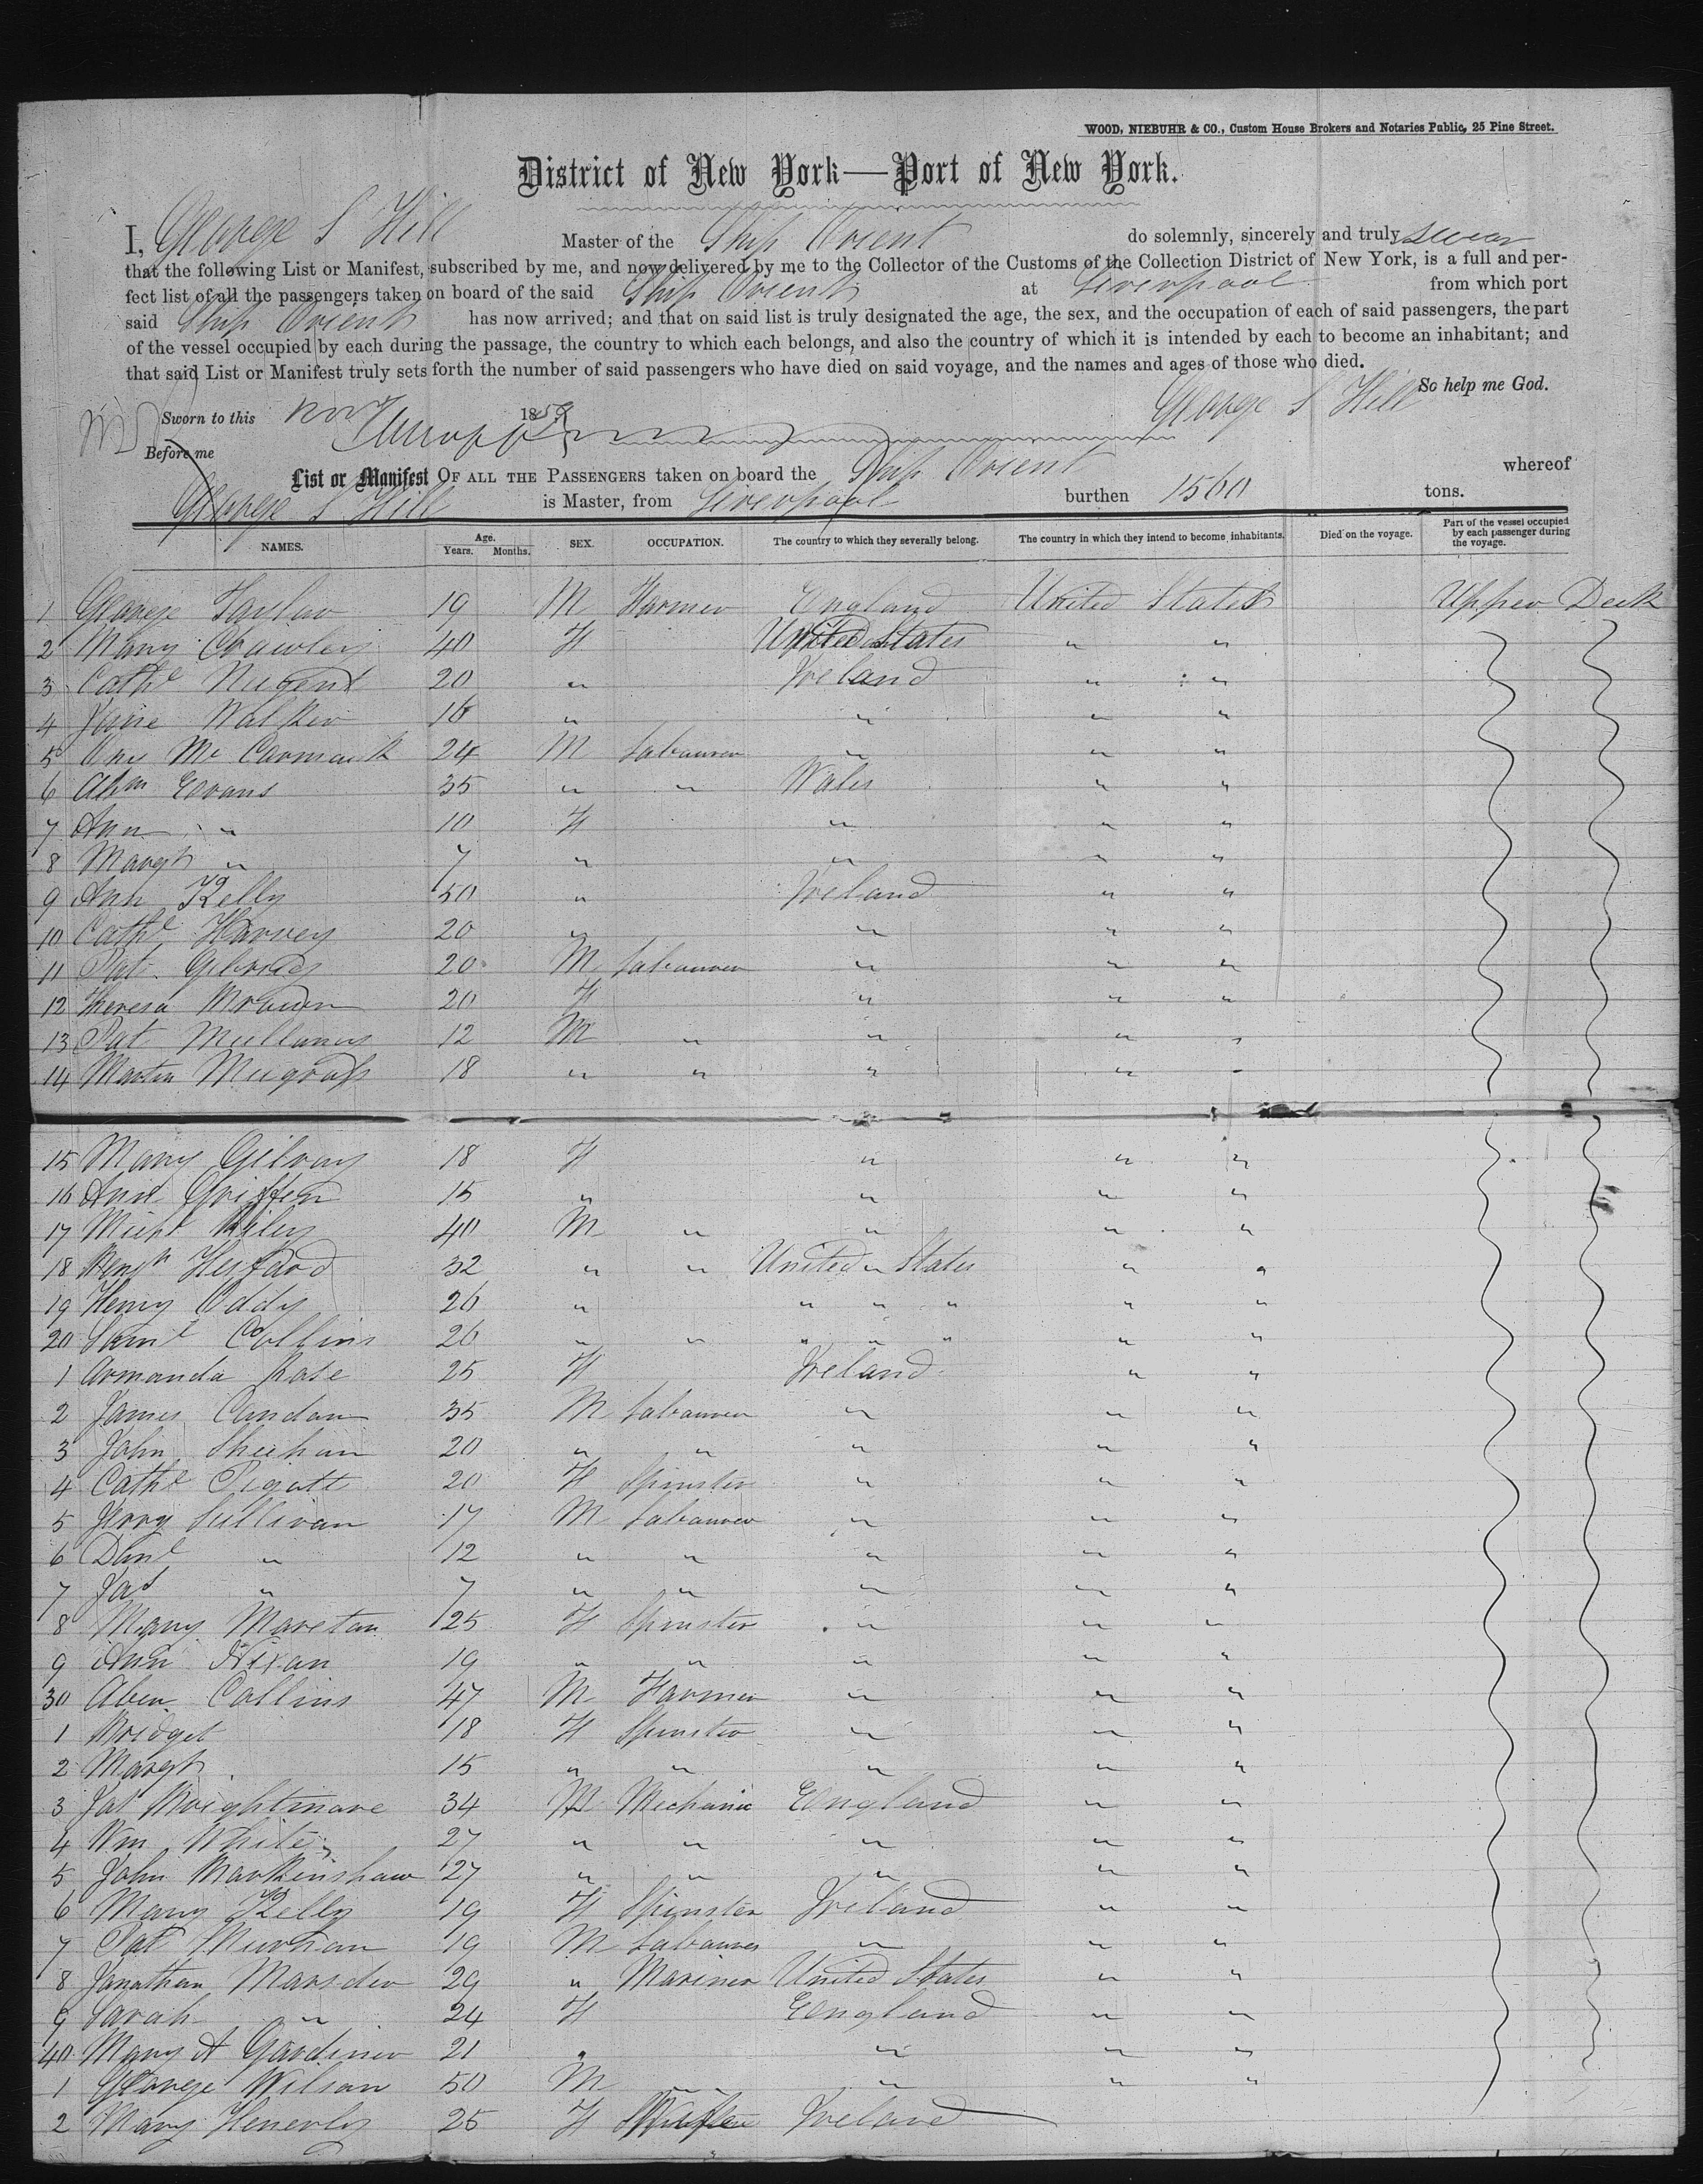 WOOD, NIEBUHR & CO., Custom House Brokers and Notaries Public, 25 Pine Street.
District of New York—Port of New York.
I, George S Hill Master of the Ship Orient do solemnly, sincerely and truly swear
that the following List or Manifest, subscribed by me, and now delivered by me to the Collector of the Customs of the Collection District of New York, is a full and per-
fect list of all the passengers taken on board of the said Ship Orient at Liverpool from which port
said Ship Orient has now arrived; and that on said list is truly designated the age, the sex, and the occupation of each of said passengers, the part
of the vessel occupied by each during the passage, the country to which each belongs, and also the country of which it is intended by each to become an inhabitant; and
that said List or Manifest truly sets forth the number of said passengers who have died on said voyage, and the names and ages of those who died.
So help me God.
Sworn to this Nov 185 George S Hill
Before me
List or Manifest OF ALL THE PASSENGERS taken on board the Ship Orient whereof
George S Hill is Master, from Liverpool burthen 1560 tons.
NAMES. Age. Years. Months. SEX. OCCUPATION. The country to which they severally belong. The country in which they intend to become inhabitants. Died on the voyage. Part of the vessel occupied by each passenger during the voyage.
1 George 19 M Farmer England United States Upper Deck
2 Mary Crawley 40 F United States " "
3 Cathe Nugent 20 " Ireland " "
4 Jane Walker 18 " " " "
5 Mc Cormack 24 M Labourer " " "
6 Abm Evans 35 " " Wales " "
7 Ann " 10 F " " "
8 Margt " 7 " " " "
9 Ann Kelly 50 " Ireland " "
10 Cathe Harvey 20 " " " "
11 Pat 20 M Labourer " " "
12 Theresa Brown 20 F " " "
13 Pat Mullaney 12 M " " " "
14 Martin 18 " " " " "
15 Mary Gilroy 18 F " " "
16 Ann Griffen 15 " " " "
17 Michl Riley 40 M " " " "
18 32 " " United States " "
19 Henry Oddy 26 " " " " " "
20 Saml Collins 26 " " " " " " "
1 Armanda Rose 25 F Ireland " "
2 James Condon 35 M Labourer " " "
3 John Sheehan 20 " " " " "
4 Cathe Pigott 20 F Spinster " " "
5 Jerry Sullivan 17 M Labourer " " "
6 Danl " 12 " " " " "
7 Jas " 7 " " " " "
8 Mary 25 F Spinster " " "
9 Ann Nixon 19 " " " " "
30 Collins 47 M Farmer " " "
1 Bridget 18 F Spinster " " "
2 Margt 15 " " " " "
3 Jas Brightmore 34 M Mechanic England " "
4 Wm White 27 " " " " "
5 John Markinshaw 27 " " " " "
6 Mary Kelly 19 F Spinster Ireland " "
7 Pat 19 M Labourer " " "
8 Jonathan Marsden 29 " Mariner United States " "
9 Sarah " 24 F England " "
40 Mary A Gardiner 21 " " " "
1 George Wilson 50 M " " "
2 Mary 25 F Ireland